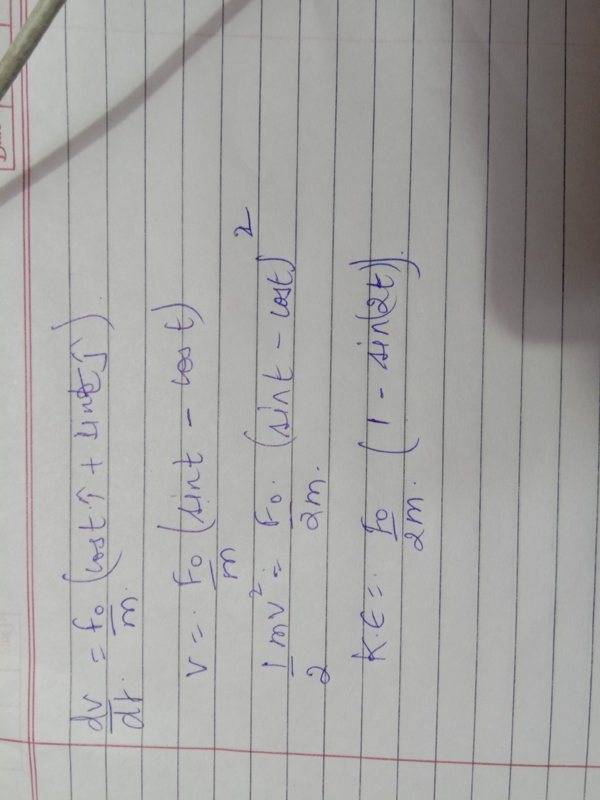 dv/dt. = F₀/m. (cost î + sint ĵ).
v = . F₀/m (sint - cost)
1/2 mv² = F₀./2m. (sint - cost)²
K.E = . F₀/2m. (1 - sin(2t)).